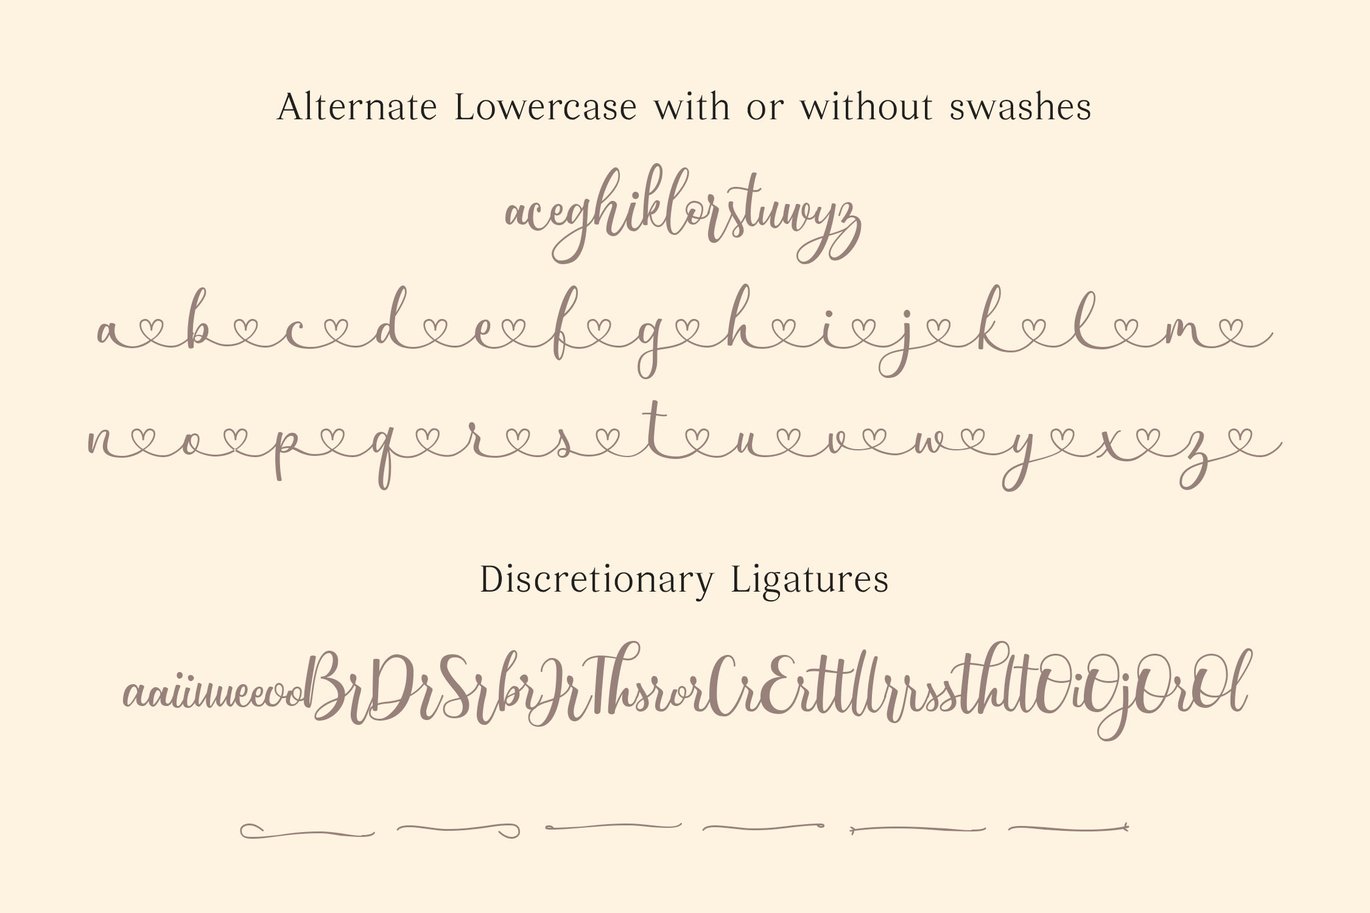 Alternate Lowercase with or without swashes
aceghiklorstuwyz
a b c d e f g h i j k l m
n o p q r s t u v w y x z
Discretionary Ligatures
aaiiuueeooBrDrSrbrJrThsrorCrErttllrrssthltOiOjOrOl